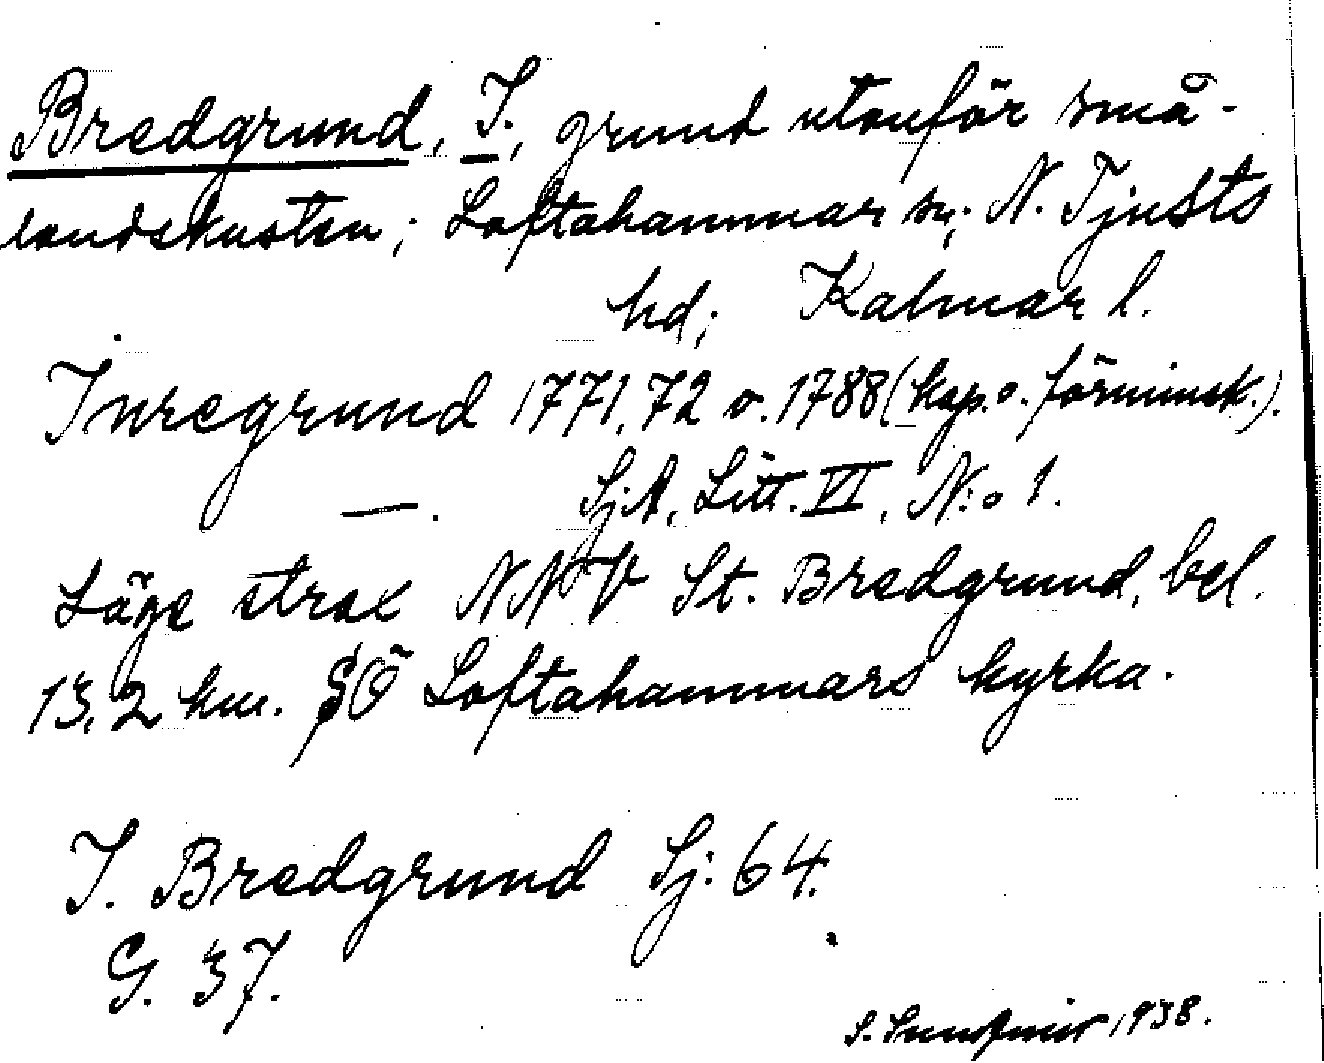 Bredgrund, I., grund utanför små-
landskusten; Loftahammar sn; N. Tjusts
hd; Kalmar l.
Inregrund 1771, 72 o. 1788 (kop. o. förminsk.).
—. Sj.A. Litt. VI, N:o 1.
Läge strax NNV St. Bredgrund, bel.
13,2 km. SÖ Loftahammars kyrka.
I. Bredgrund Sj: 64.
G. 37.
S. 1938.